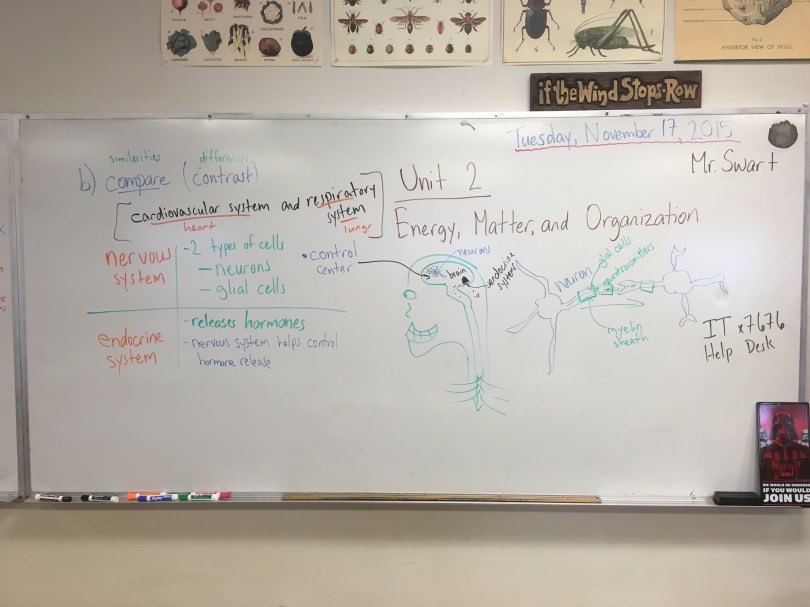 ANTERIOR VIEW OF SKULL
if the Wind Stops-Row
Tuesday, November 17, 2015
Mr. Swart
similarities
b) compare (contrast)
cardiovascular system and respiratory
system
heart
lungs
Unit 2
Energy, Matter, and Organization
nervous
system
-2 types of cells
- neurons
- glial cells
endocrine
system
-releases hormones
-nervous system helps control
hormone release
• control
center
neurons
brain
endocrine
system
neuron
glial cells
neurotransmitters
myelin
sheath
IT x7676
Help Desk
IF YOU WOULD
JOIN US